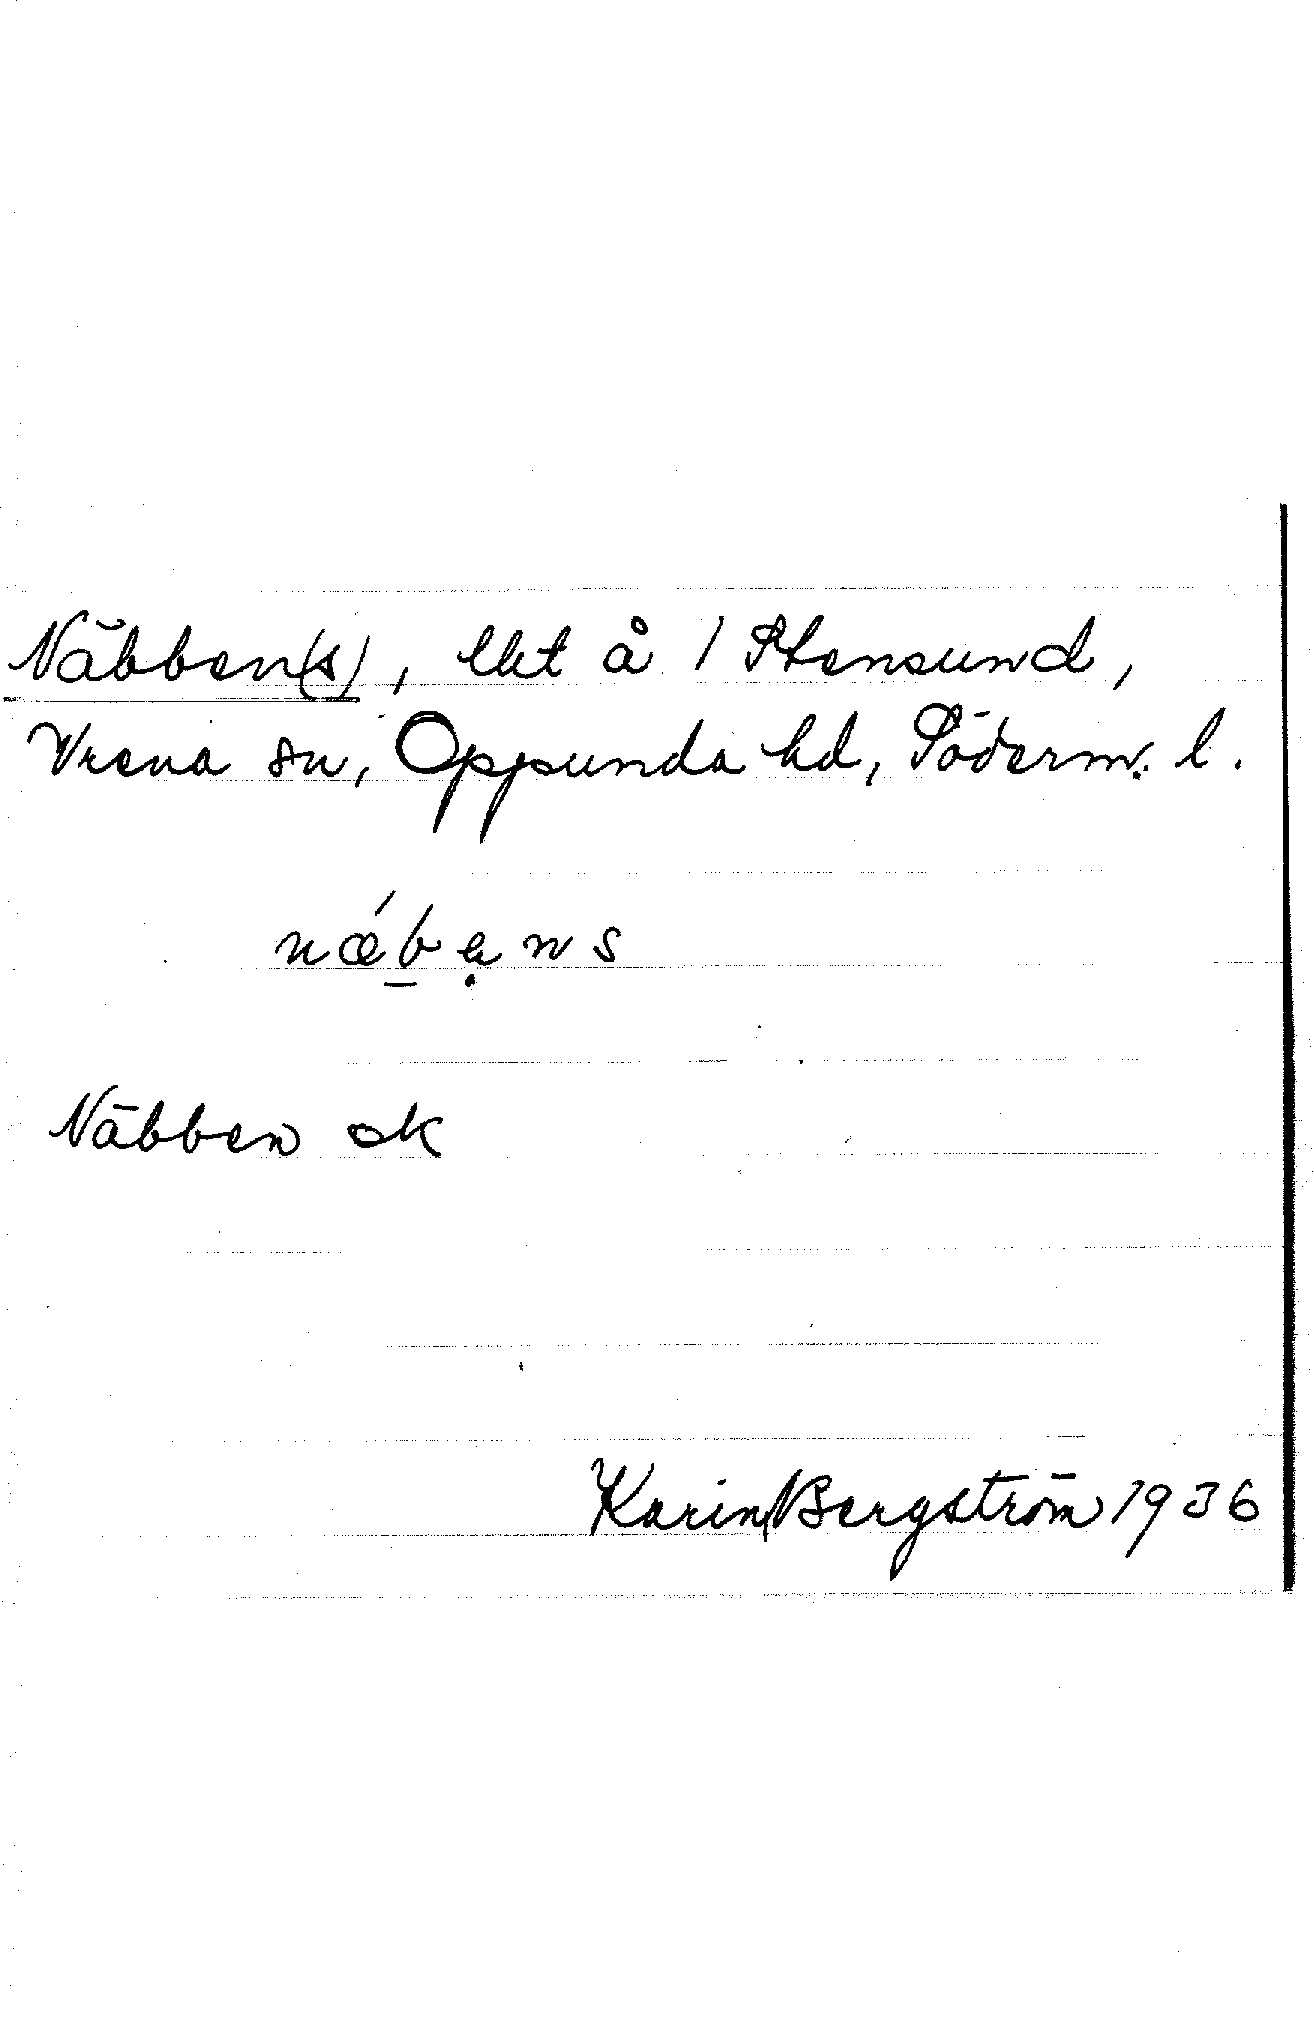 Näbben(s), lht å 1 Stensund,
Vrena sn, Oppunda hd, Söderm. l.
næ´bẹns
Näbben ek
Karin Bergström 1936